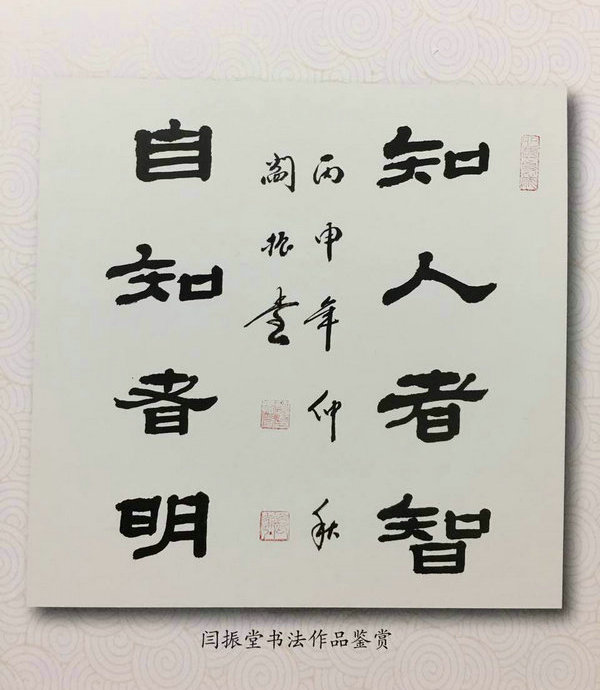 知人者智
丙申年仲秋
阎振堂
自知者明
闫振堂书法作品鉴赏